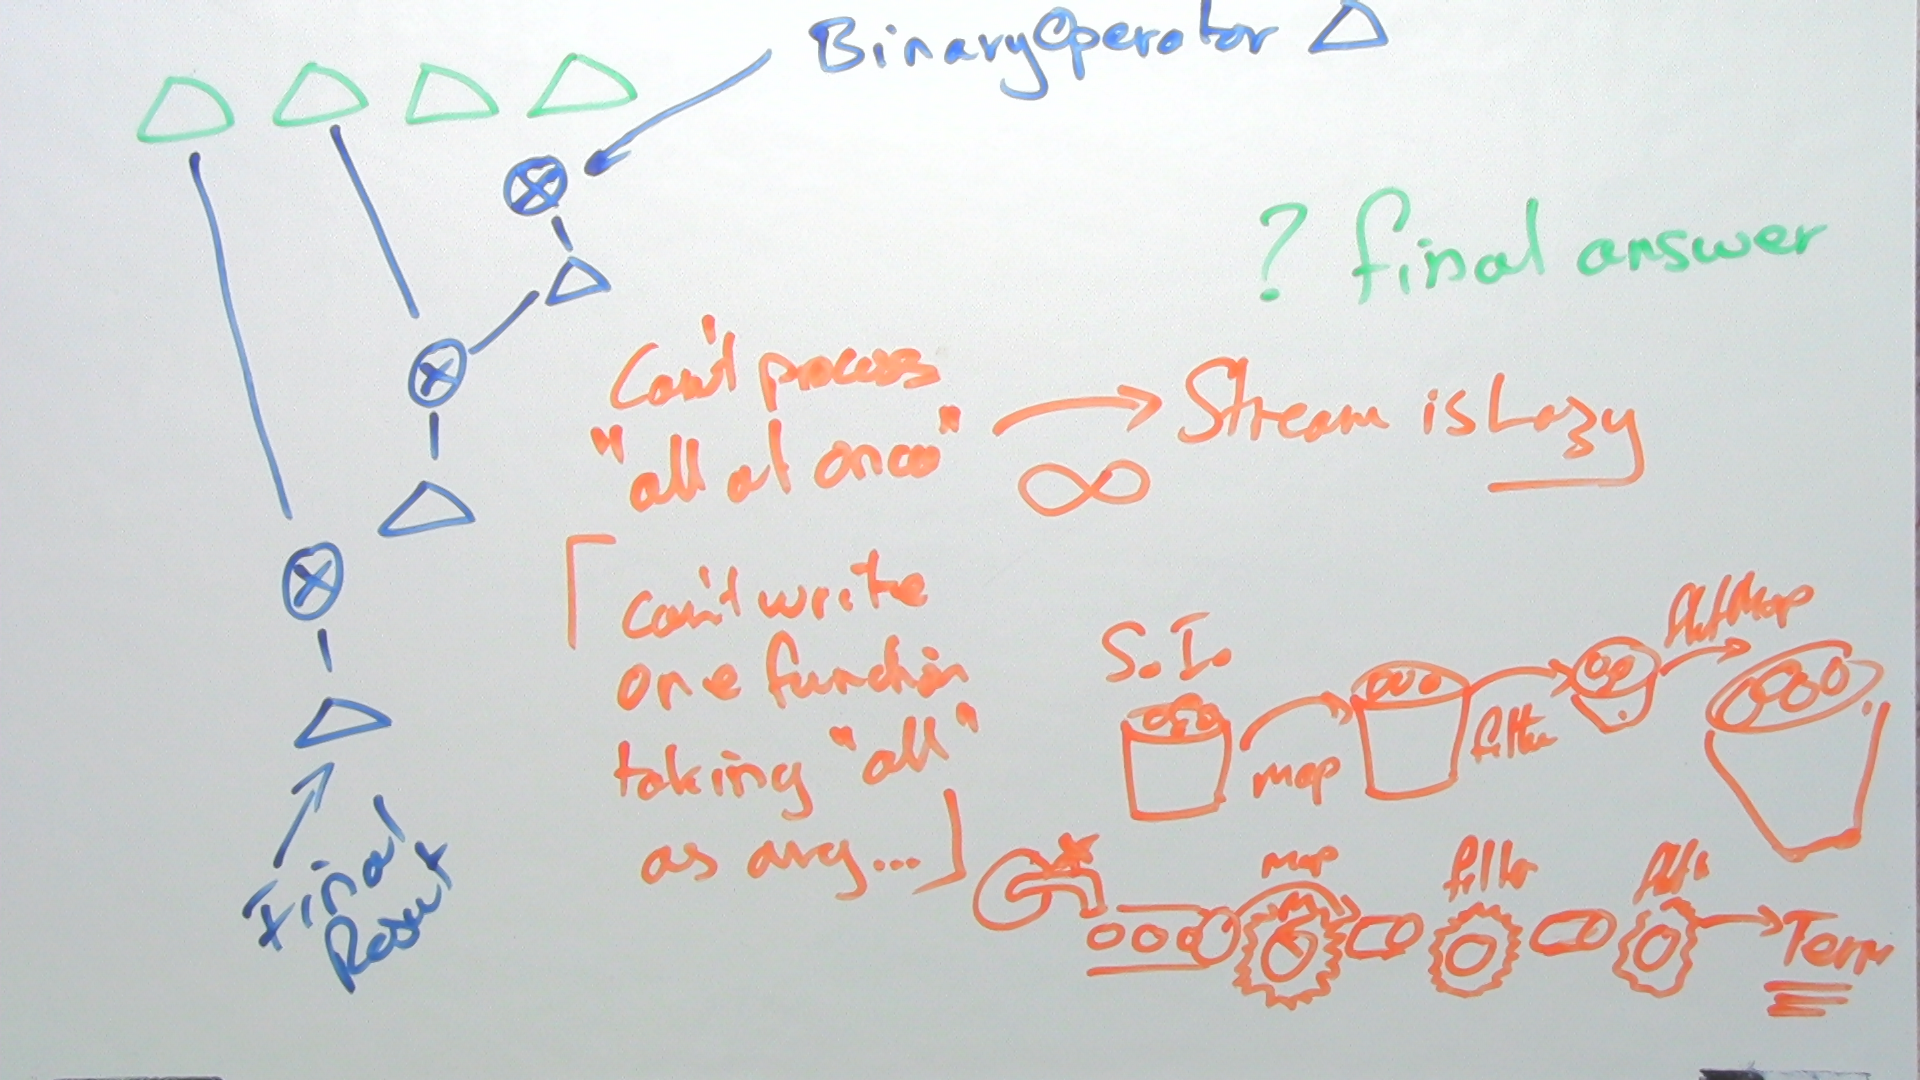 BinaryOperator △
? final answer
Can't process
"all at once"
∞
Stream is Lazy
can't write
one function
taking "all"
as arg...
S.I.
map
filter
flatMap
map
filter
Term
Final
Result